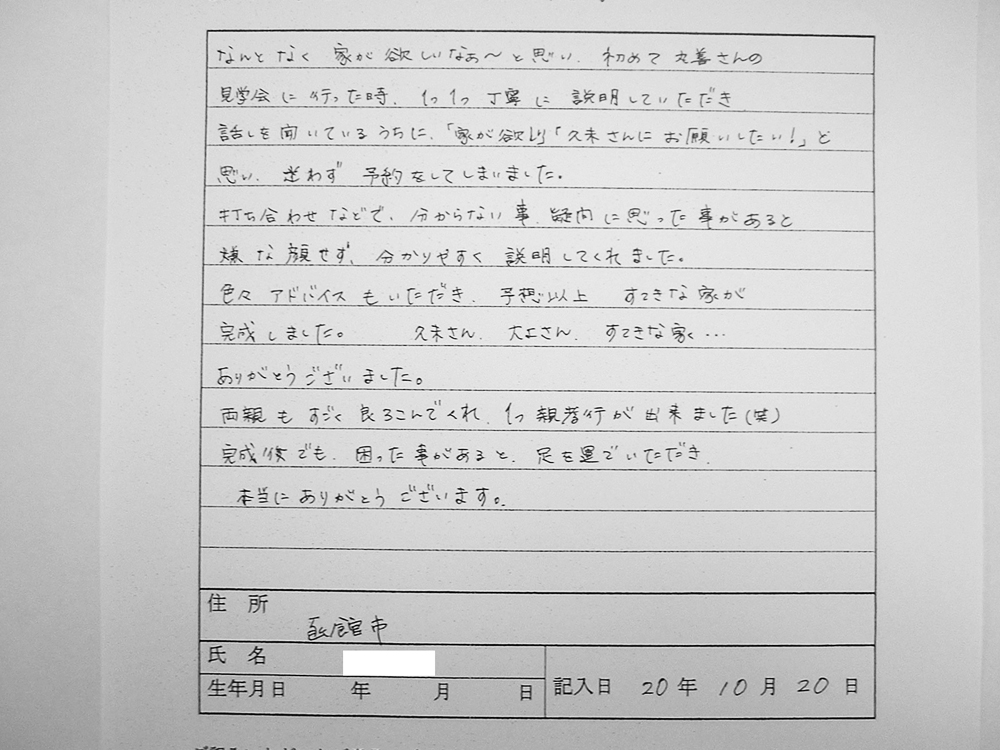 なんとなく 家が欲しいなぁ〜と思い、初めて丸善さんの
見学会に行った時、1つ1つ丁寧に説明していただき
話しを聞いているうちに、「家が欲しい」「久末さんにお願いしたい!」と
思い、迷わず予約をしてしまいました。
打ち合わせなどで、分からない事、疑問に思った事があると
嫌な顔せず、分かりやすく説明してくれました。
色々アドバイスもいただき、予想以上 すてきな家が
完成しました。 久末さん、大上さん、すてきな家…
ありがとうございました。
両親もすごく良ろこんでくれ、1つ親孝行が出来ました(笑)
完成後でも、困った事があると、足を運でいただき、
本当にありがとうございます。
住 所
函館市
氏 名
生年月日 年 月 日 記入日 20年 10月 20日